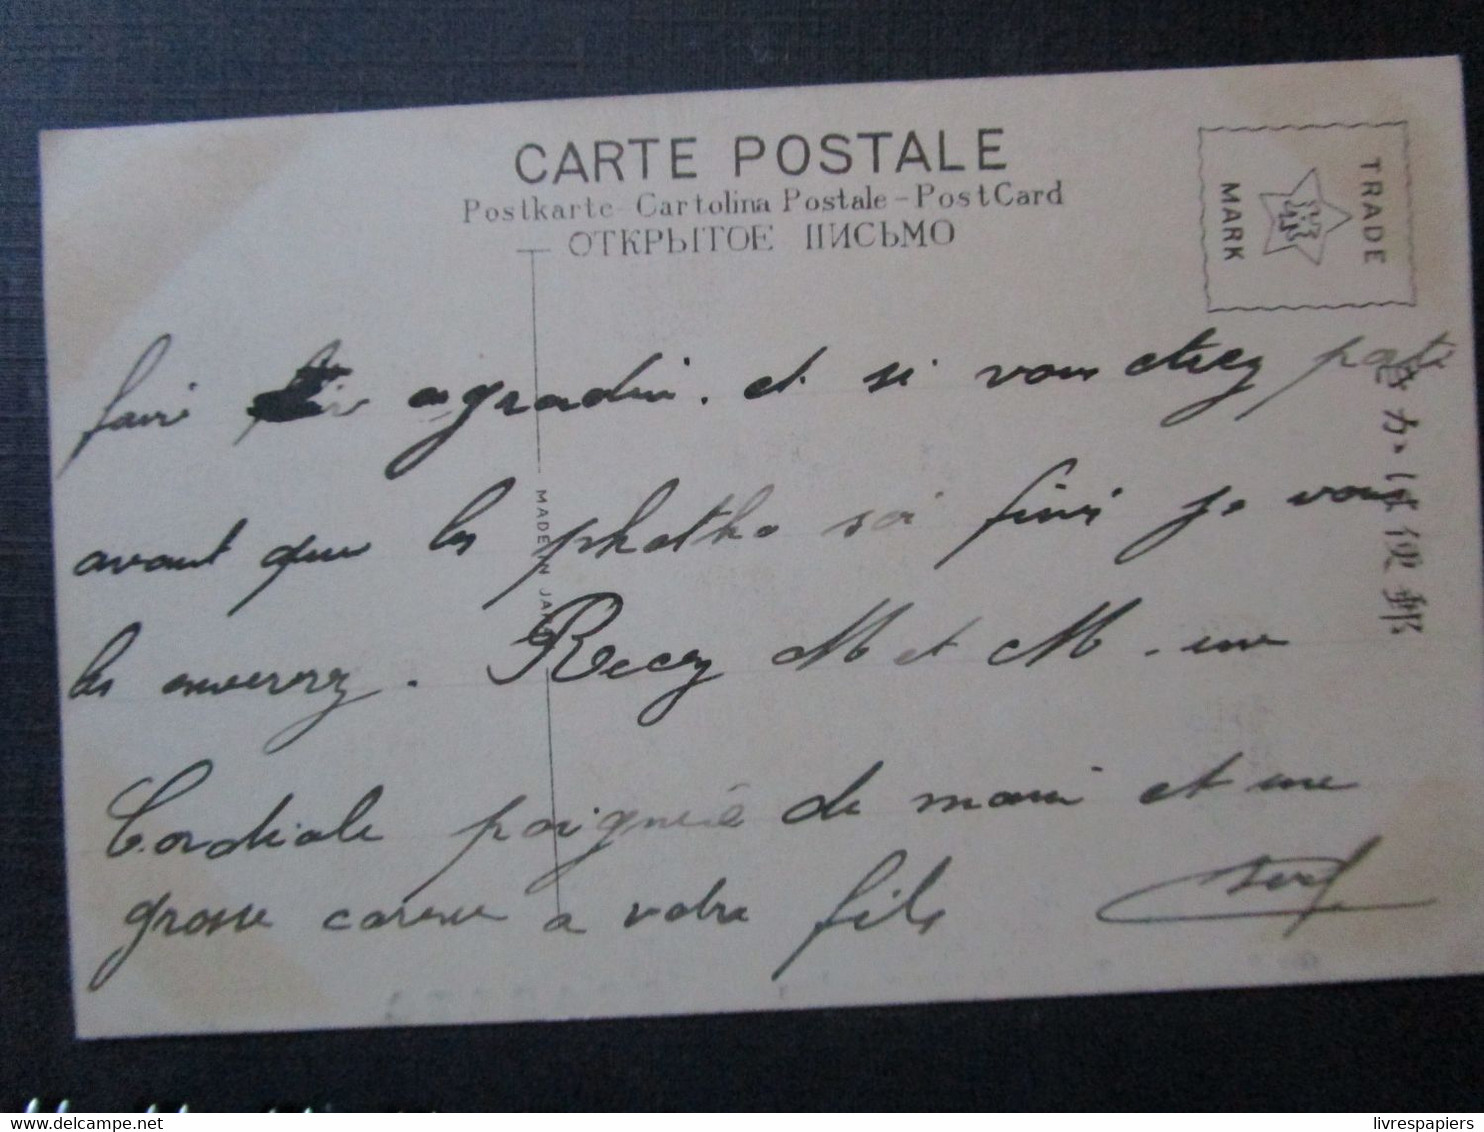 CARTE POSTALE
Postkarte - Cartolina Postale - PostCard
ОТКРЫТОЕ ПИСЬМО
TRADE
MARK
きかは便郵
MADE IN JAPAN
faire agradir. et si vous etiez parti
avant que les photho soi fini je vous
les enverrez. Recez M et M. une
Cordiale poignée de main et une
grosse caresse a votre fils
livrespapiers